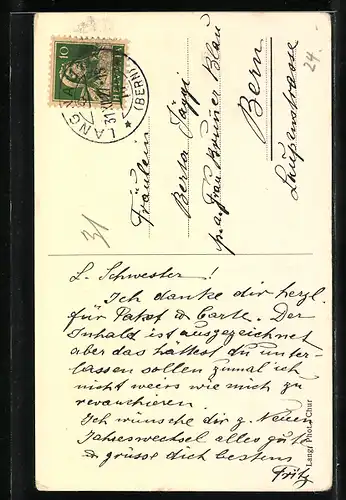 L. Schwester!
Ich danke dir herzl.
für Paket & Carte. Der
Inhald ist ausgezeichnet
aber das hättest du unter-
lassen sollen zumal ich
nicht weiss wie mich zu
revanchieren.
Ich wünsche dir z. Neuen
Jahreswechsel alles gute
& grüsse dich bestens
Fritz
Fräulein
Berta Jäggi
p. adr. Frau Brunner Blau
Bern
Laupenstrasse
24.
31
10
HELVETIA
LANGNAU
31.XII
(BERN)
Langs Photo Chur